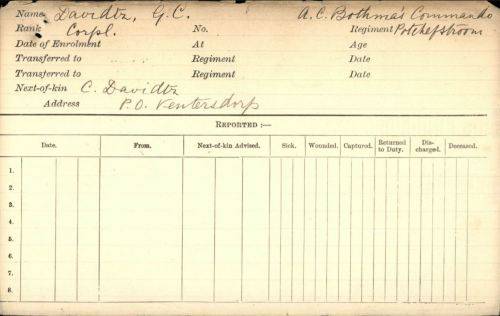 Name Davidtz, G.C. A.C. Bothma's Commando
Rank Corpl. No. Regiment Potchefstroom
Date of Enrolment At Age
Transferred to Regiment Date
Transferred to Regiment Date
Next-of-kin C. Davidtz
Address P.O. Ventersdorp
REPORTED :—
Date. From. Next-of-kin Advised. Sick. Wounded. Captured. Returned to Duty. Dis-charged. Deceased.
1.
2.
3.
4.
5.
6.
7.
8.